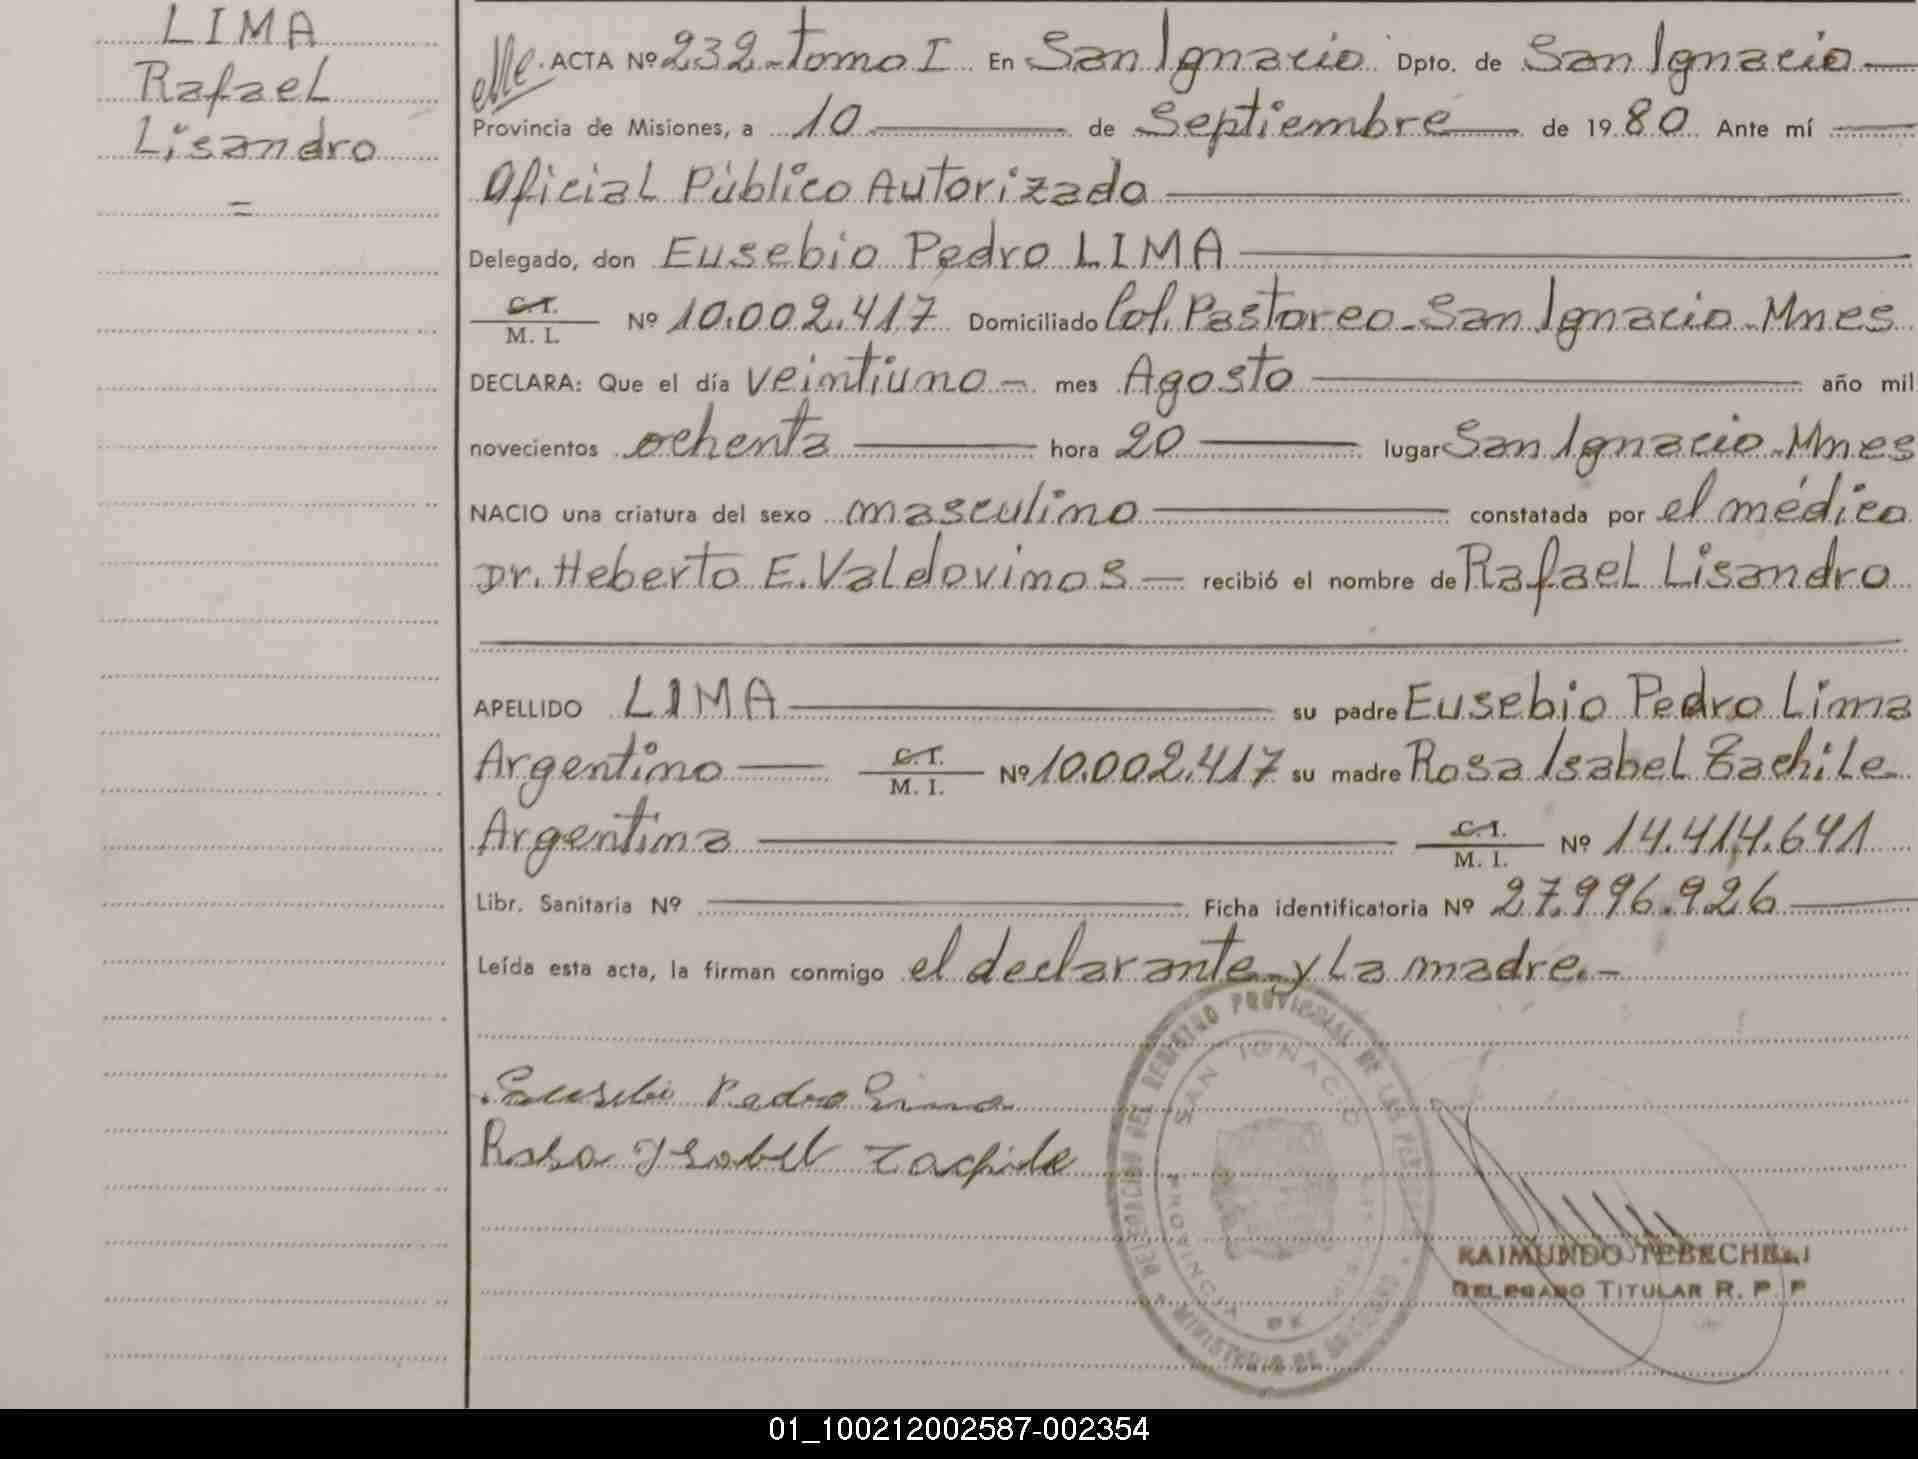 LIMA
Rafael
Lisandro
=
ACTA Nº 232-Tomo I En San Ignacio Dpto. de San Ignacio
Provincia de Misiones, a 10 de Septiembre de 1980 Ante mí
Oficial Público Autorizado
Delegado, don Eusebio Pedro LIMA
C.I.
M. I. Nº 10.002.417 Domiciliado Col. Pastoreo-San Ignacio-Mnes
DECLARA: Que el día veintiuno - mes Agosto año mil
novecientos ochenta hora 20 lugar San Ignacio-Mnes
NACIO una criatura del sexo masculino constatada por el médico
Dr. Heberto E. Valdovinos recibió el nombre de Rafael Lisandro
APELLIDO LIMA su padre Eusebio Pedro Lima
Argentino C.I. M. I. Nº 10.002.417 su madre Rosa Isabel Zachile
Argentina C.I. M. I. Nº 14.414.641
Libr. Sanitaria Nº Ficha identificatoria Nº 27.996.926
Leída esta acta, la firman conmigo el declarante y La madre.-
Eusebio Pedro Lima
Rosa Ysabel Zachile
DELEGACION DEL REGISTRO PROVINCIAL DE LAS PERSONAS
SAN IGNACIO
PROVINCIA DE MISIONES
MINISTERIO DE GOBIERNO
RAIMUNDO
DELEGADO TITULAR R. P. P
01_100212002587-002354